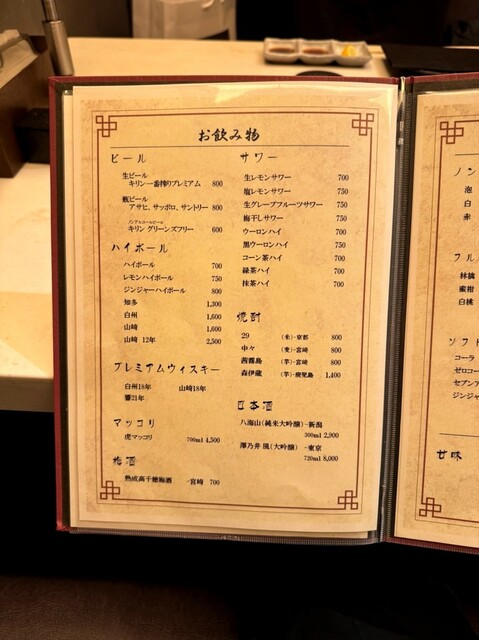 お飲み物
ビール
生ビール
キリン一番搾りプレミアム 800
瓶ビール
アサヒ、サッポロ、サントリー 800
ノンアルコールビール
キリン グリーンズフリー 600
ハイボール
ハイボール 700
レモンハイボール 750
ジンジャーハイボール 800
知多 1,300
白州 1,600
山崎 1,600
山崎 12年 2,500
プレミアムウィスキー
白州18年 山崎18年
響21年
マッコリ
虎マッコリ 700ml 4,500
梅酒
熟成高千穂梅酒 -宮崎 700
サワー
生レモンサワー 700
塩レモンサワー 750
生グレープフルーツサワー 750
梅干しサワー 750
ウーロンハイ 700
黒ウーロンハイ 750
コーン茶ハイ 700
緑茶ハイ 700
抹茶ハイ 700
焼酎
29 (米)-京都 800
中々 (麦)-宮崎 800
茜霧島 (芋)-宮崎 800
森伊蔵 (芋)-鹿児島 1,400
日本酒
八海山(純米大吟醸)-新潟
300ml 2,900
澤乃井 凰(大吟醸) -東京
720ml 8,000
ノン
泡
白
赤
フル
林檎
蜜柑
白桃
ソフト
コーラ
ゼロコー
セブンア
ジンジャ
甘味